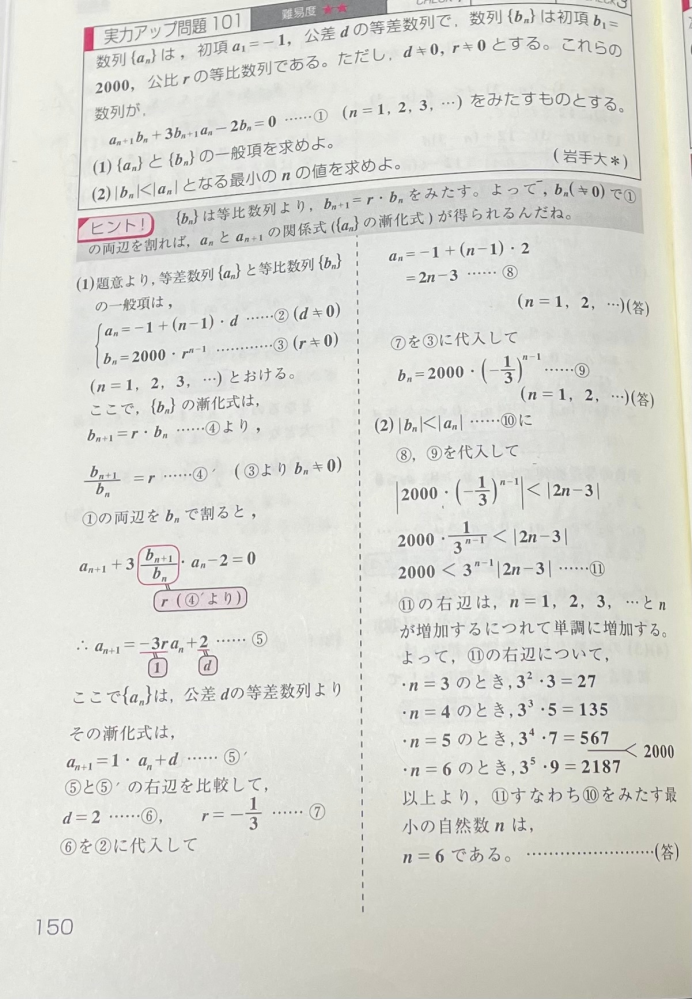 実力アップ問題 101
難易度 ★★
CHECK 3
数列 {aₙ} は, 初項 a₁=−1, 公差 d の等差数列で, 数列 {bₙ} は初項 b₁=
2000, 公比 r の等比数列である。ただし, d≠0, r≠0 とする。これらの
数列が,
aₙ₊₁bₙ+3bₙ₊₁aₙ−2bₙ=0 ……① (n=1, 2, 3, …) をみたすものとする。
(1) {aₙ} と {bₙ} の一般項を求めよ。
(2) |bₙ|<|aₙ| となる最小の n の値を求めよ。
(岩手大*)
ヒント! {bₙ} は等比数列より, bₙ₊₁=r・bₙ をみたす。よって, bₙ(≠0)で①
の両辺を割れば, aₙ と aₙ₊₁ の関係式({aₙ} の漸化式)が得られるんだね。
(1)題意より, 等差数列{aₙ}と等比数列{bₙ}
の一般項は,
aₙ=−1+(n−1)・d ……② (d≠0)
bₙ=2000・rⁿ⁻¹ …………③ (r≠0)
(n=1, 2, 3, …) とおける。
ここで, {bₙ} の漸化式は,
bₙ₊₁=r・bₙ ……④より,
bₙ₊₁/bₙ =r ……④′ (③より bₙ≠0)
①の両辺を bₙ で割ると,
aₙ₊₁+3 bₙ₊₁/bₙ・aₙ−2=0
r (④′より)
∴ aₙ₊₁=−3raₙ+2 ……⑤
1 d
ここで{aₙ}は, 公差 dの等差数列より
その漸化式は,
aₙ₊₁=1・aₙ+d ……⑤′
⑤と⑤′の右辺を比較して,
d=2 ……⑥, r=−1/3 ……⑦
⑥を②に代入して
aₙ=−1+(n−1)・2
=2n−3 ……⑧
(n=1, 2, …)(答)
⑦を③に代入して
bₙ=2000・(−1/3)ⁿ⁻¹ ……⑨
(n=1, 2, …)(答)
(2) |bₙ|<|aₙ| ……⑩に
⑧, ⑨を代入して
|2000・(−1/3)ⁿ⁻¹|<|2n−3|
2000・1/3ⁿ⁻¹<|2n−3|
2000<3ⁿ⁻¹|2n−3| ……⑪
⑪の右辺は, n=1, 2, 3, …と n
が増加するにつれて単調に増加する。
よって, ⑪の右辺について,
・n=3 のとき, 3²・3=27
・n=4 のとき, 3³・5=135
・n=5 のとき, 3⁴・7=567
< 2000
・n=6 のとき, 3⁵・9=2187
以上より, ⑪すなわち⑩をみたす最
小の自然数 n は,
n=6 である。……………………(答)
150